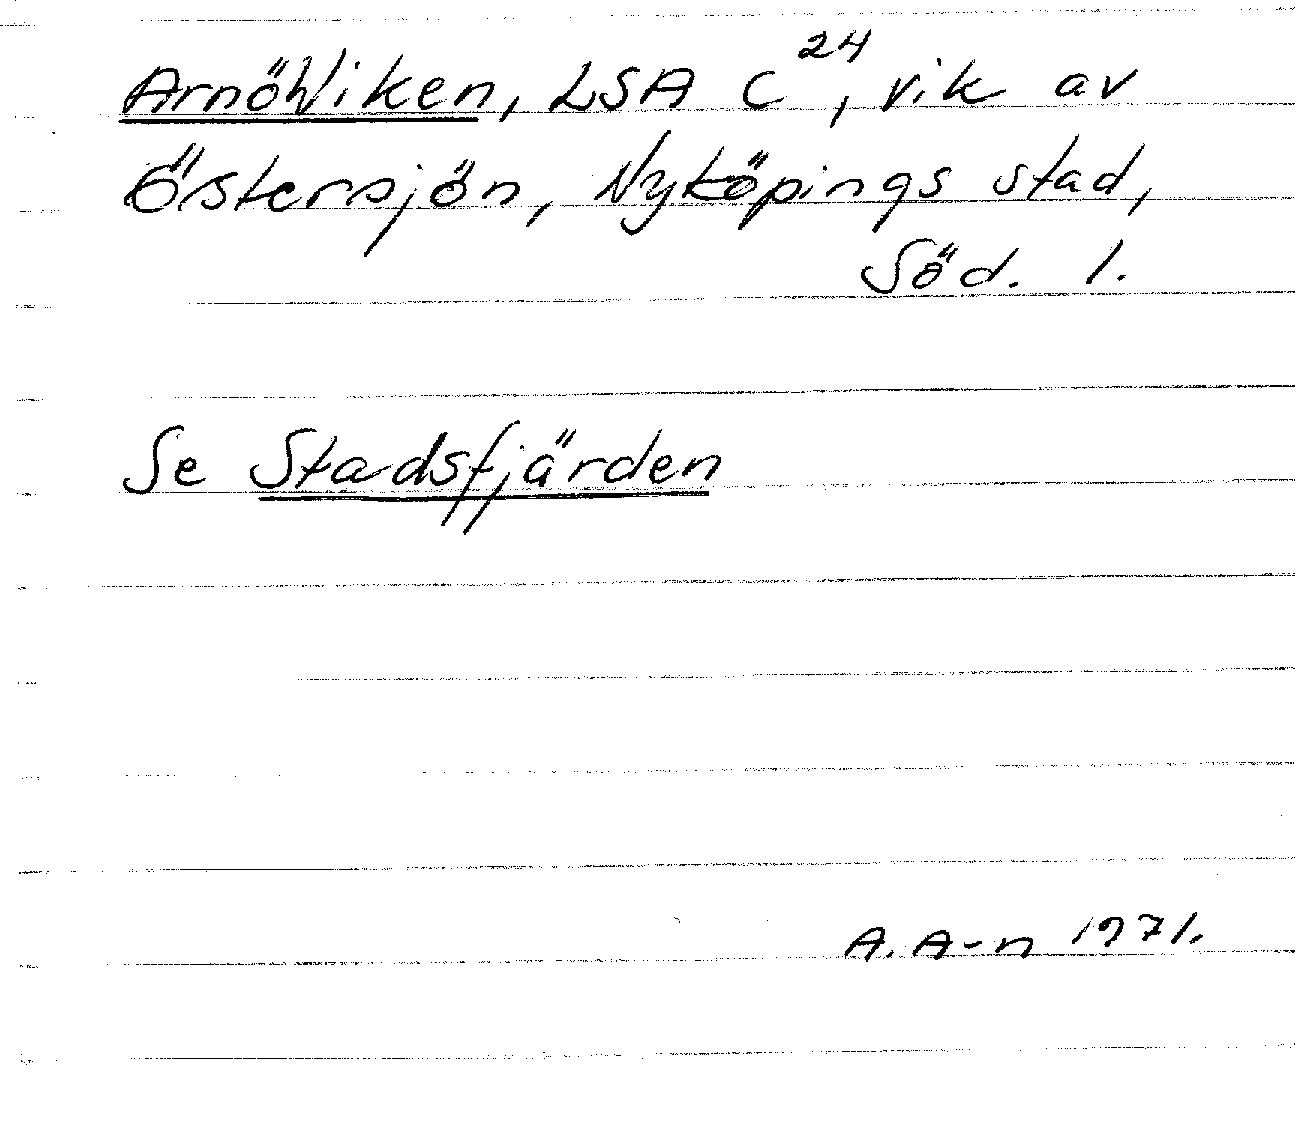 ArnöWiken, LSA C²⁴, vik av
Östersjön, Nyköpings stad,
Söd. l.
Se Stadsfjärden
A. A-n 1971.